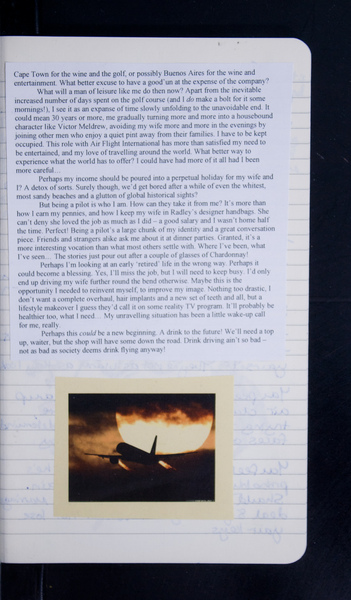 Cape Town for the wine and the golf, or possibly Buenos Aires for the wine and
entertainment. What better excuse to have a good'un at the expense of the company?
What will a man of leisure like me do then now? Apart from the inevitable
increased number of days spent on the golf course (and I do make a bolt for it some
mornings!), I see it as an expanse of time slowly unfolding to the unavoidable end. It
could mean 30 years or more, me gradually turning more and more into a housebound
character like Victor Meldrew, avoiding my wife more and more in the evenings by
joining other men who enjoy a quiet pint away from their families. I have to be kept
occupied. This role with Air Flight International has more than satisfied my need to
be entertained, and my love of travelling around the world. What better way to
experience what the world has to offer? I could have had more of it all had I been
more careful...
Perhaps my income should be poured into a perpetual holiday for my wife and
I? A detox of sorts. Surely though, we'd get bored after a while of even the whitest,
most sandy beaches and a glutton of global historical sights?
But being a pilot is who I am. How can they take it from me? It's more than
how I earn my pennies, and how I keep my wife in Radley's designer handbags. She
can't deny she loved the job as much as I did – a good salary and I wasn't home half
the time. Perfect! Being a pilot's a large chunk of my identity and a great conversation
piece. Friends and strangers alike ask me about it at dinner parties. Granted, it's a
more interesting vocation than what most others settle with. Where I've been, what
I've seen... The stories just pour out after a couple of glasses of Chardonnay!
Perhaps I'm looking at an early 'retired' life in the wrong way. Perhaps it
could become a blessing. Yes, I'll miss the job, but I will need to keep busy. I'd only
end up driving my wife further round the bend otherwise. Maybe this is the
opportunity I needed to reinvent myself, to improve my image. Nothing too drastic, I
don't want a complete overhaul, hair implants and a new set of teeth and all, but a
lifestyle makeover I guess they'd call it on some reality TV program. It'll probably be
healthier too, what I need... My unravelling situation has been a little wake-up call
for me, really.
Perhaps this could be a new beginning. A drink to the future! We'll need a top
up, waiter, but the shop will have some down the road. Drink driving ain't so bad –
not as bad as society deems drink flying anyway!